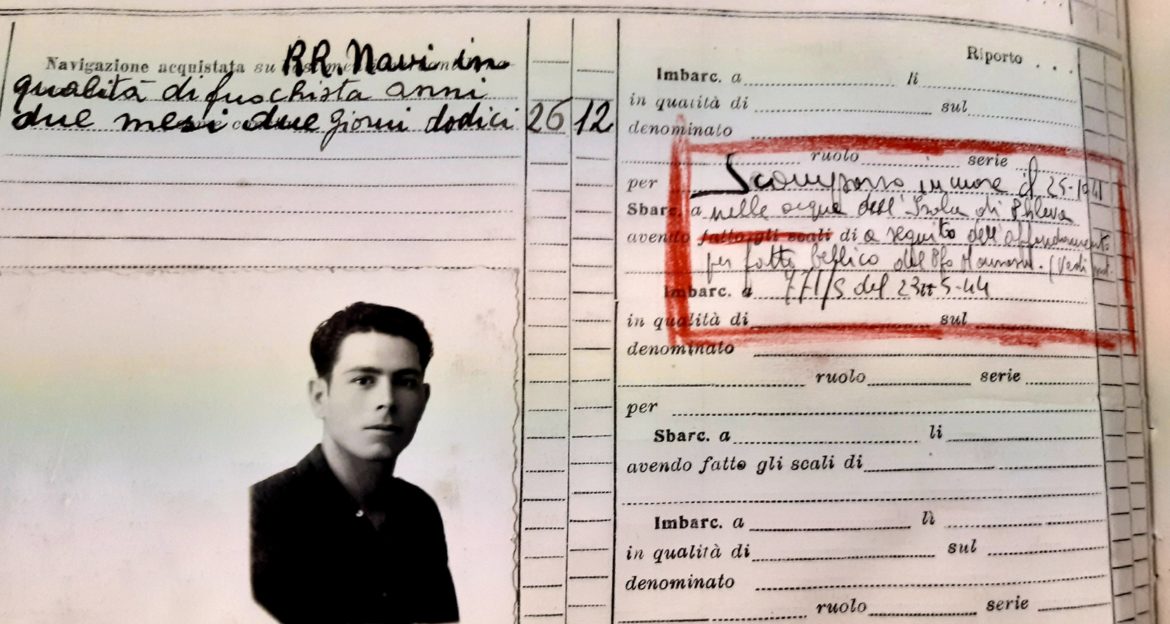 Navigazione acquistata su RR. Navi in
qualità di fuochista anni
due mesi due giorni dodici 26 12
Riporto . . .
Imbarc. a lì
in qualità di sul
denominato
ruolo serie
per Scomparso in mare il 25-
Sbarc. a nelle acque dell'Isola di
avendo fatto gli scali di a seguito dell'affondamento
per fatto bellico del Pfo (Vedi
Imbarc. a 771/S del 23-5-44
in qualità di sul
denominato
ruolo serie
per
Sbarc. a lì
avendo fatto gli scali di
Imbarc. a lì
in qualità di sul
denominato
ruolo serie